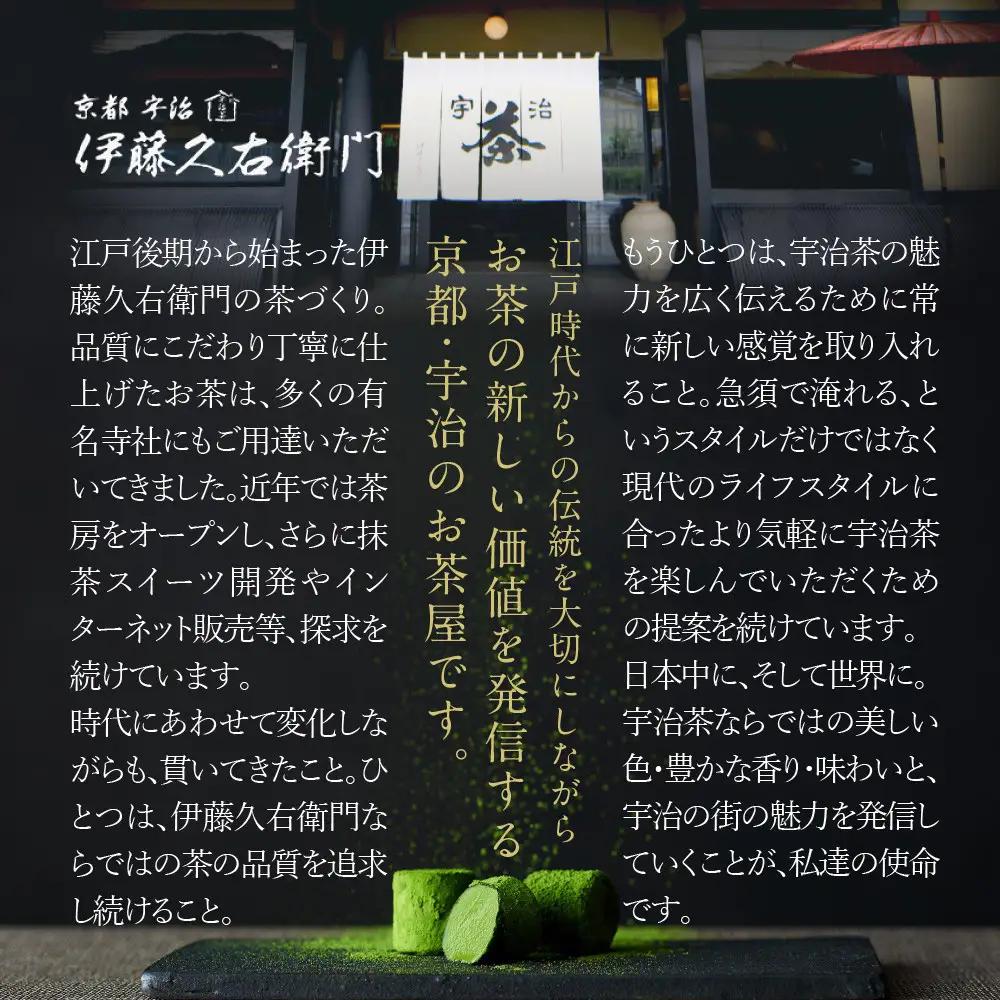 京都 宇治
伊藤久右衛門
宇治
茶
江戸後期から始まった伊
藤久右衛門の茶づくり。
品質にこだわり丁寧に仕
上げたお茶は、多くの有
名寺社にもご用達いただ
いてきました。近年では茶
房をオープンし、さらに抹
茶スイーツ開発やイン
ターネット販売等、探求を
続けています。
時代にあわせて変化しな
がらも、貫いてきたこと。ひ
とつは、伊藤久右衛門な
らではの茶の品質を追求
し続けること。
江戸時代からの伝統を大切にしながら
お茶の新しい価値を発信する
京都・宇治のお茶屋です。
もうひとつは、宇治茶の魅
力を広く伝えるために常
に新しい感覚を取り入れ
ること。急須で淹れる、と
いうスタイルだけではなく
現代のライフスタイルに
合ったより気軽に宇治茶
を楽しんでいただくため
の提案を続けています。
日本中に、そして世界に。
宇治茶ならではの美しい
色・豊かな香り・味わいと、
宇治の街の魅力を発信し
ていくことが、私達の使命
です。